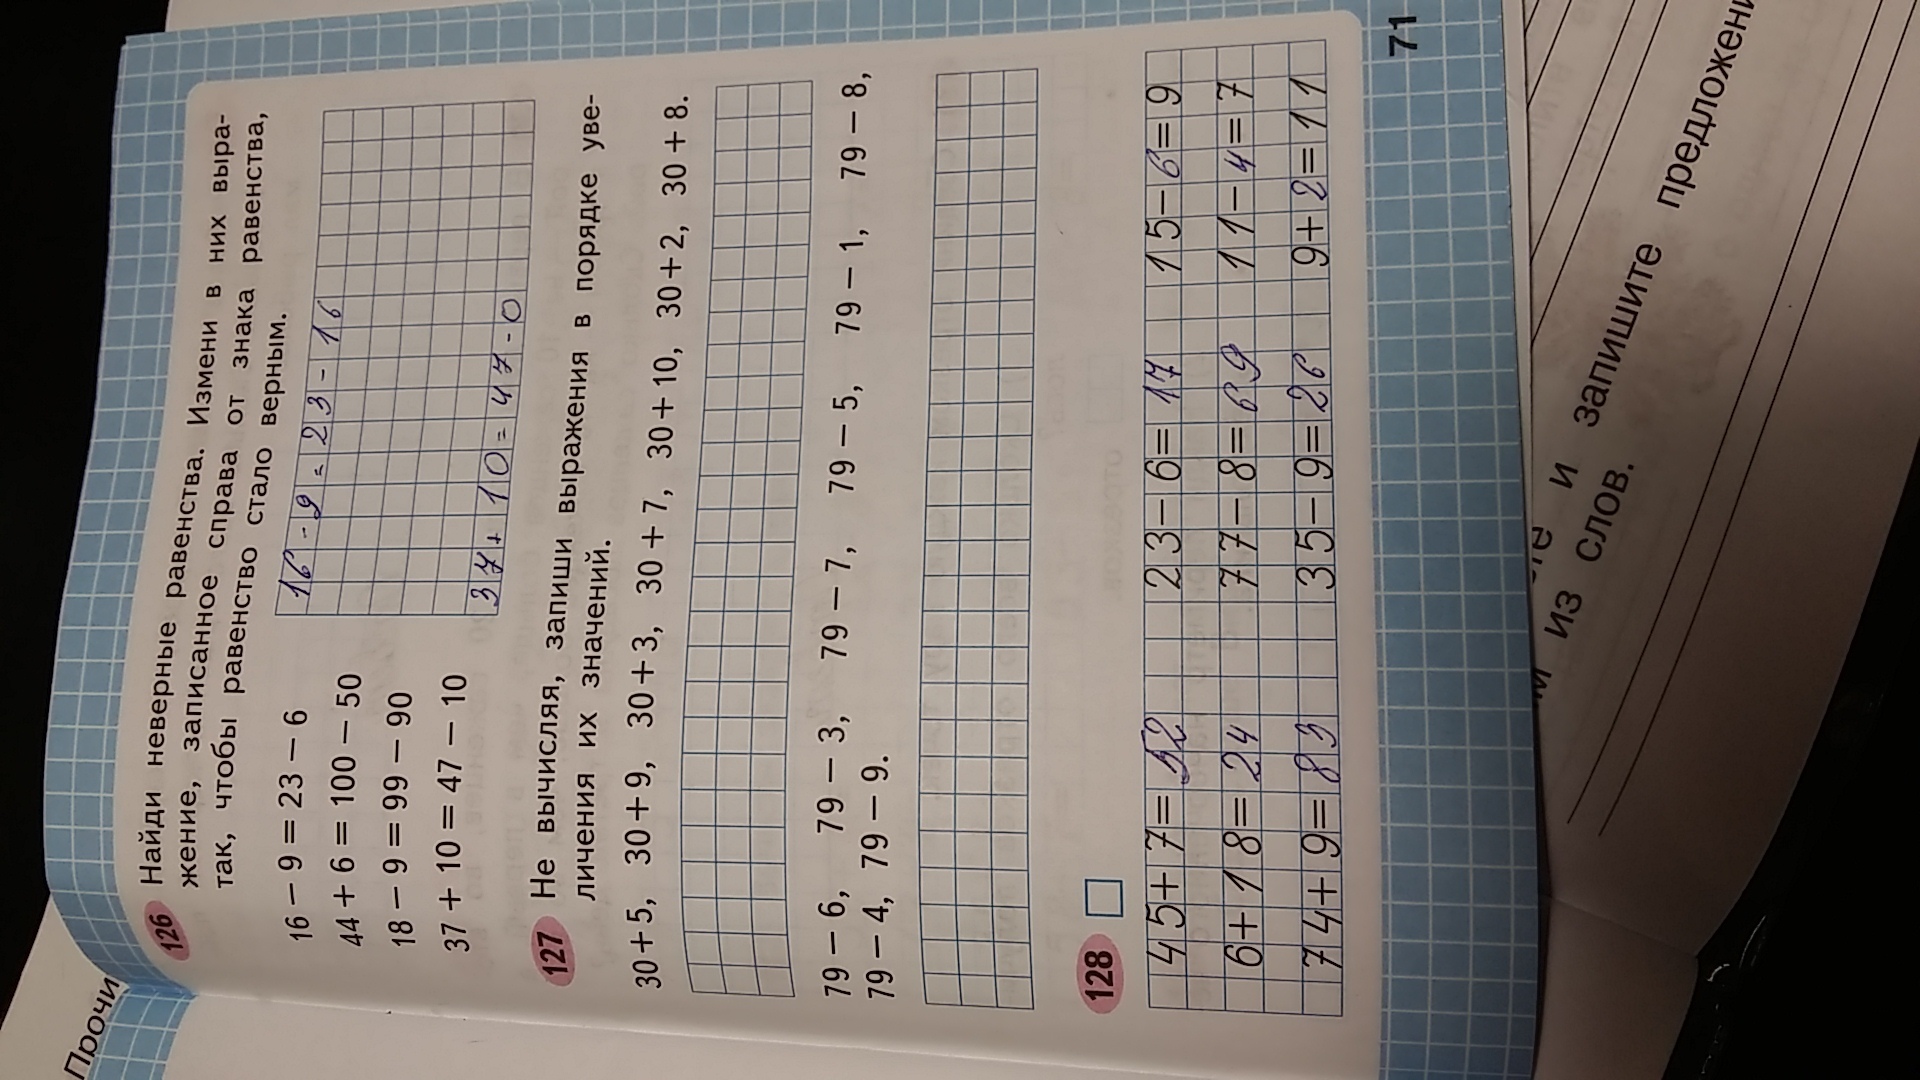 126 Найди неверные равенства. Измени в них выра-
жение, записанное справа от знака равенства,
так, чтобы равенство стало верным.
16 − 9 = 23 − 6 16 - 9 = 23 - 16
44 + 6 = 100 − 50
18 − 9 = 99 − 90
37 + 10 = 47 − 10 37 + 10 = 47 - 0
127 Не вычисляя, запиши выражения в порядке уве-
личения их значений.
30 + 5, 30 + 9, 30 + 3, 30 + 7, 30 + 10, 30 + 2, 30 + 8.
79 − 6, 79 − 3, 79 − 7, 79 − 5, 79 − 1, 79 − 8,
79 − 4, 79 − 9.
128
45+7=52 23−6=17 15−6=9
6+18=24 77−8=69 11−4=7
74+9=83 35−9=26 9+2=11
71
Прочи
и запишите предложени
из слов.